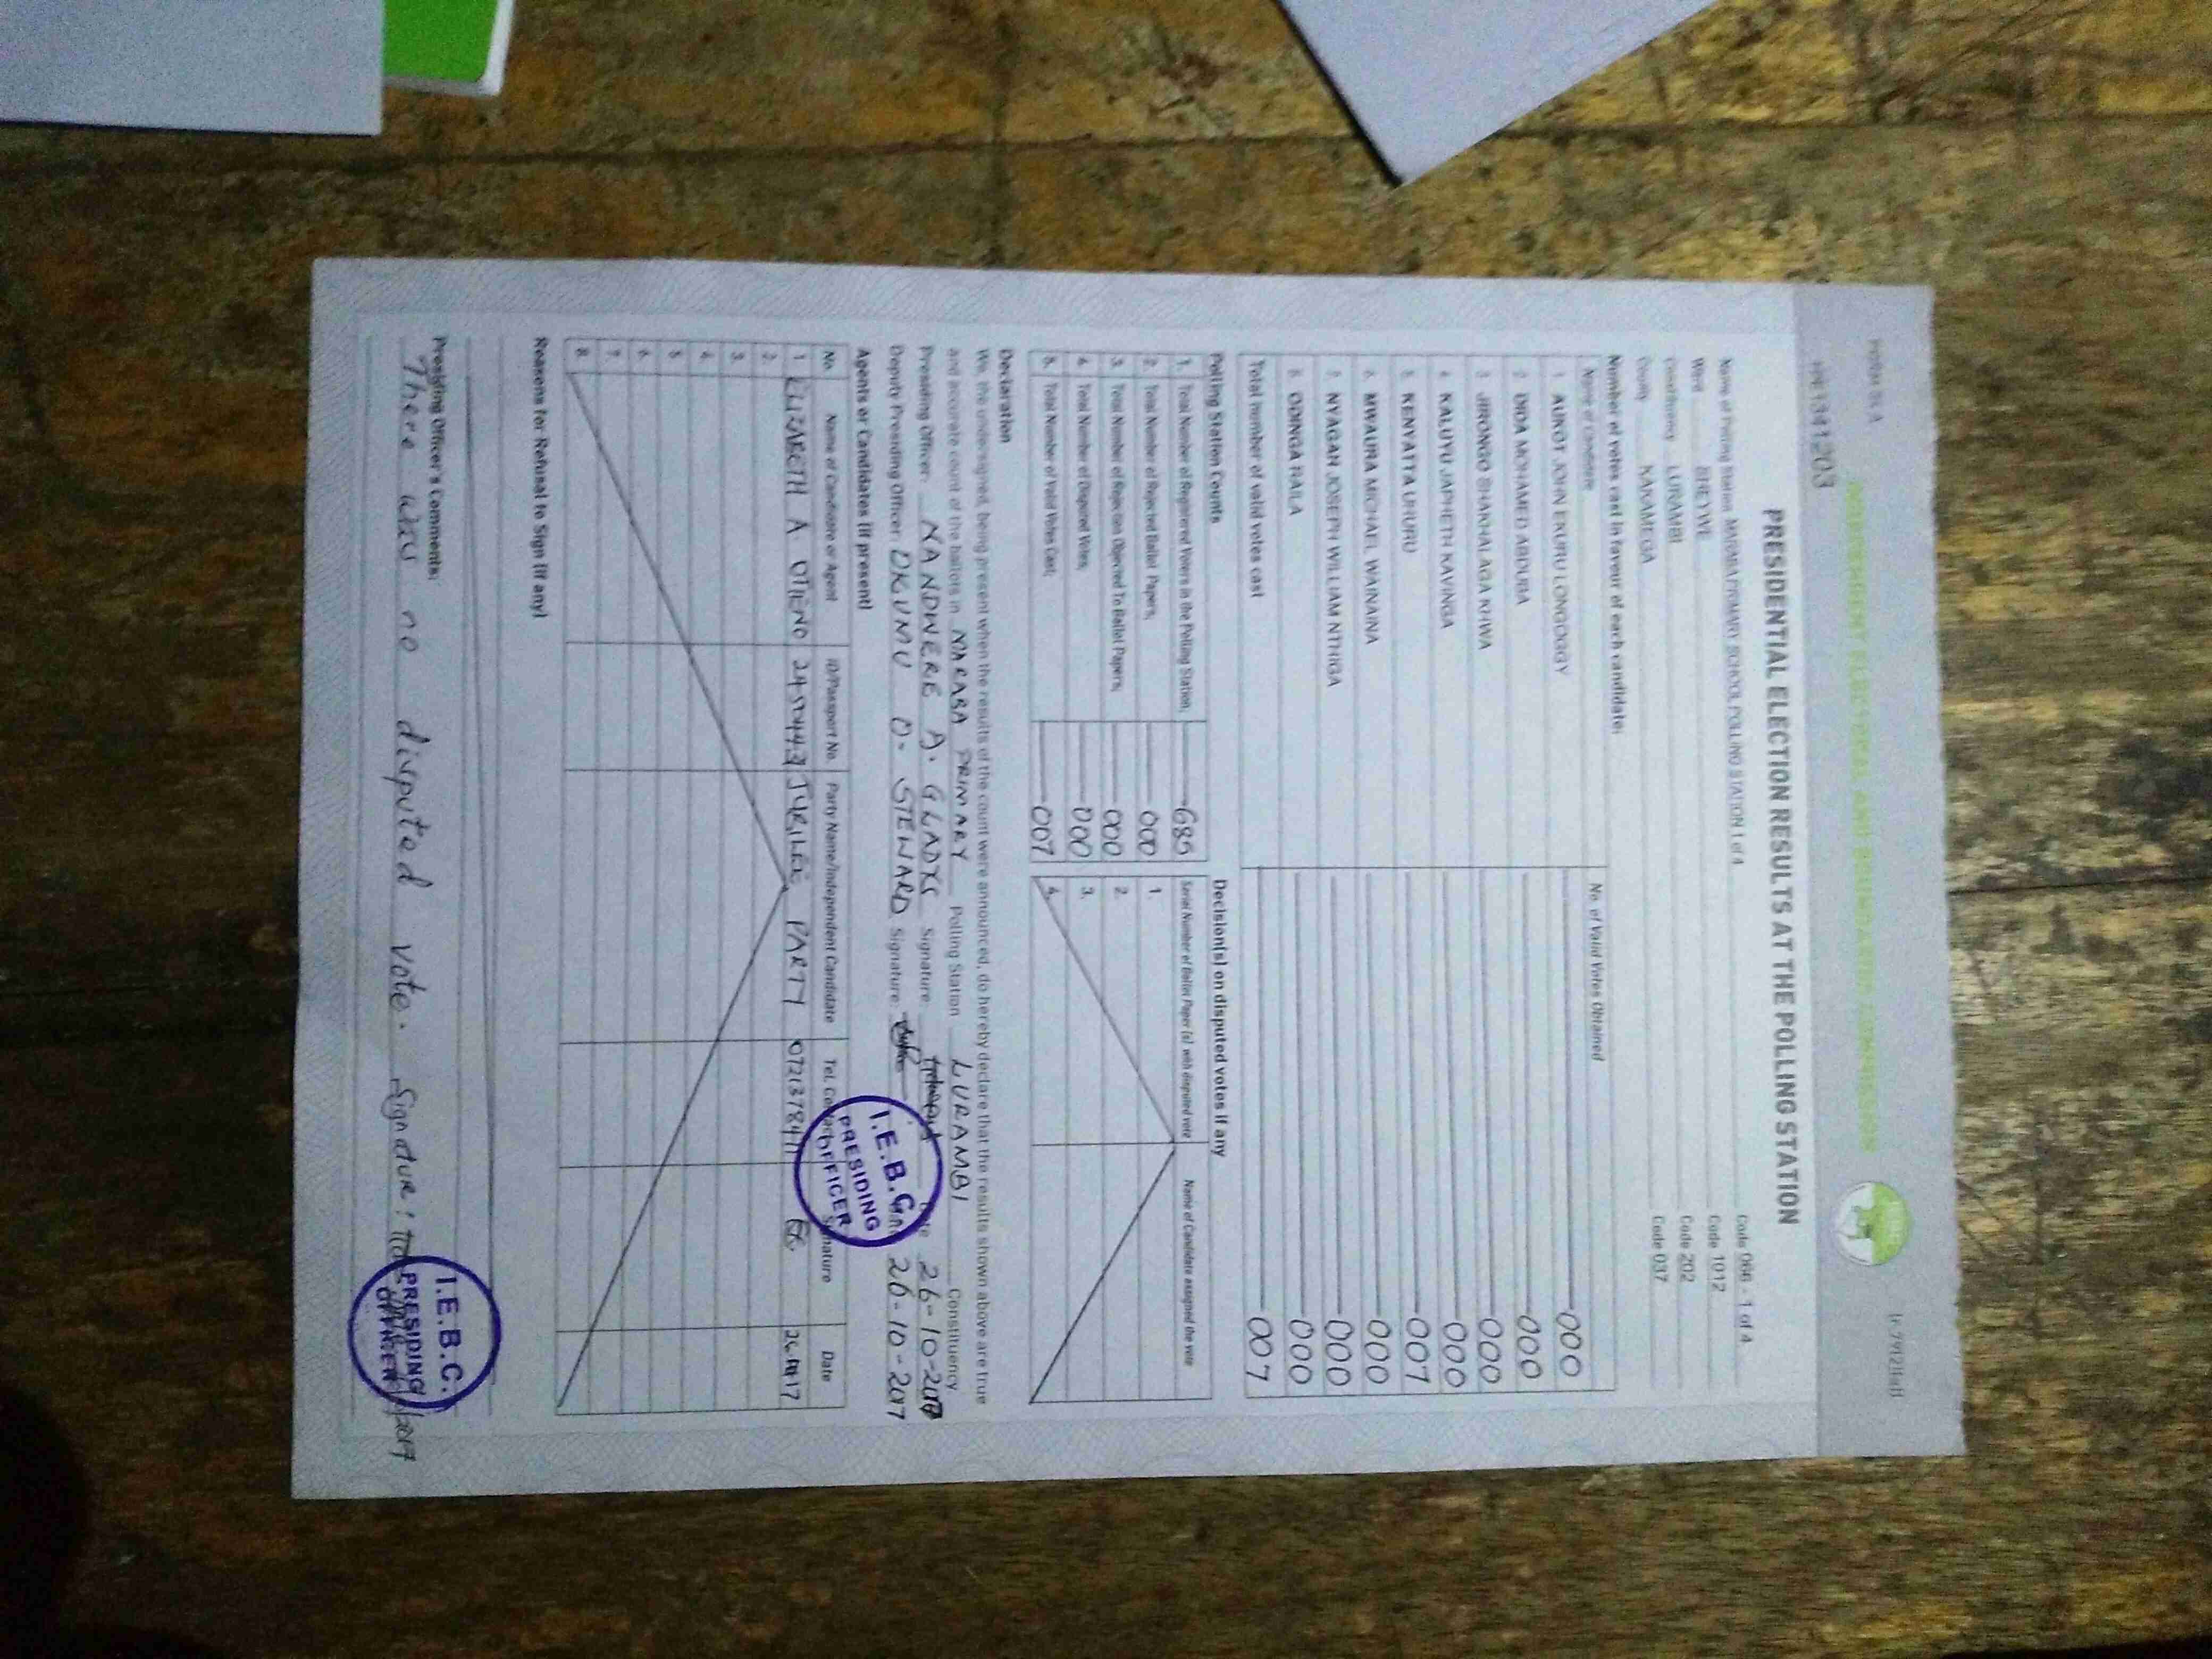 FORM 34 A
INDEPENDENT ELECTORAL AND BOUNDARIES COMMISSION
PRESIDENTIAL ELECTION RESULTS AT THE POLLING STATION
Name of Polling Station MARABA PRIMARY SCHOOL POLLING STATION 1 of 4 Code 066 - 1 of 4
Ward SHEYWE Code 1012
Constituency LURAMBI Code 202
County KAKAMEGA Code 037
Number of votes cast in favour of each candidate:
Name of Candidate No. of Valid Votes Obtained
1. AUKOT JOHN EKURU LONGOGGY 000
2. DIDA MOHAMED ABDUBA 000
3. JIRONGO SHAKHALAGA KHWA 000
4. KALUYU JAPHETH KAVINGA 000
5. KENYATTA UHURU 007
6. MWAURA MICHAEL WAINAINA 000
7. NYAGAH JOSEPH WILLIAM NTHIGA 000
8. ODINGA RAILA 000
Total number of valid votes cast 007
Polling Station Counts
1. Total Number of Registered Voters in the Polling Station; 685
2. Total Number of Rejected Ballot Papers; 000
3. Total Number of Rejection Objected To Ballot Papers; 000
4. Total Number of Disputed Votes; 000
5. Total Number of Valid Votes Cast; 007
Decision(s) on disputed votes if any
Serial Number of Ballot Paper (s) with disputed vote Name of Candidate assigned the vote
1.
2.
3.
4.
Declaration
We, the undersigned, being present when the results of the count were announced, do hereby declare that the results shown above are true
and accurate count of the ballots in MARABA PRIMARY Polling Station LURAMBI Constituency
Presiding Officer: NANDWERE A. GLADYS Signature: Date 26-10-2017
Deputy Presiding Officer: OKUMU O. STEWARD Signature: Date 26-10-2017
I.E.B.C.
PRESIDING
OFFICER
Agents or Candidates (if present)
No. Name of Candidate or Agent ID/Passport No. Party Name/Independent Candidate Tel. Contact Signature Date
1. ELIZABETH A OTIENO JUBILEE PARTY
2.
3.
4.
5.
6.
7.
8.
Reasons for Refusal to Sign (if any)
Presiding Officer's Comments:
There was no disputed vote. Signature:
I.E.B.C.
PRESIDING
OFFICER